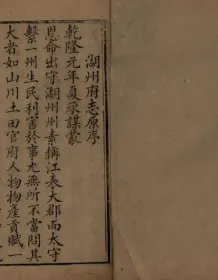 湖州府志原序
乾隆元年夏承謀蒙
恩命出守湖州州素稱江表大郡而太守
繫一州生民利害於事尢無所不當問其
大者如山川土田官府人物物產貢賦一